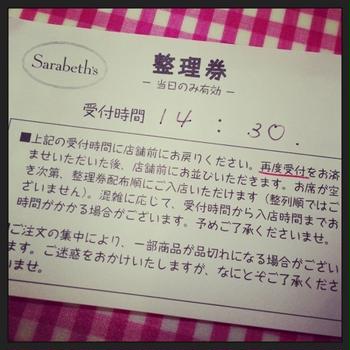 Sarabeth's
整理券
－ 当日のみ有効 －
受付時間 14 : 30.
■上記の受付時間に店舗前にお戻りください。再度受付をお済
ませいただいた後、店舗前にお並びいただきます。お席が空
き次第、整理券配布順にご入店いただけます（整列順ではご
ざいません）。混雑に応じて、受付時間から入店時間までお
時間がかかる場合がございます。予めご了承くださいませ。
ご注文の集中により、一部商品が品切れになる場合がござい
ます。ご迷惑をおかけいたしますが、なにとぞご了承くださ
いませ。